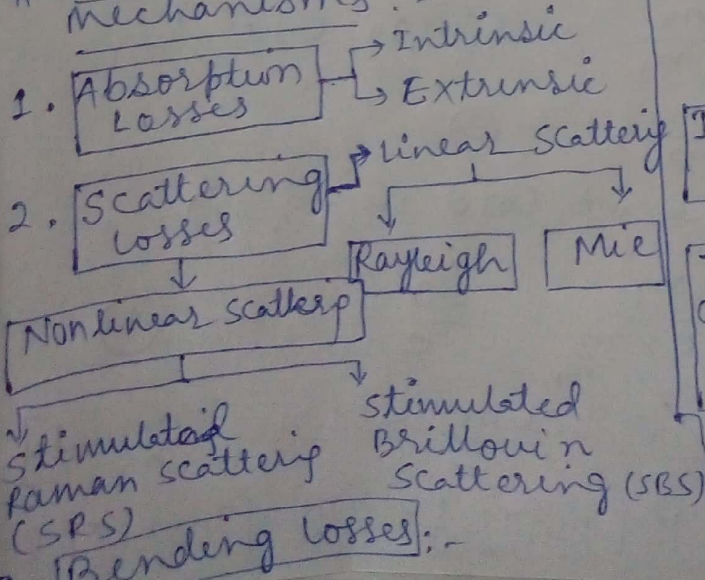 mechanisms.
1. Absorption Losses
Intrinsic
Extrinsic
2. Scattering Losses
Linear Scatterig
Rayleigh
Mie
Nonlinear Scatterig
Stimulated
Raman Scatterig
(SRS)
Stimulated
Brillouin
Scattering (SBS)
Bending Losses:-